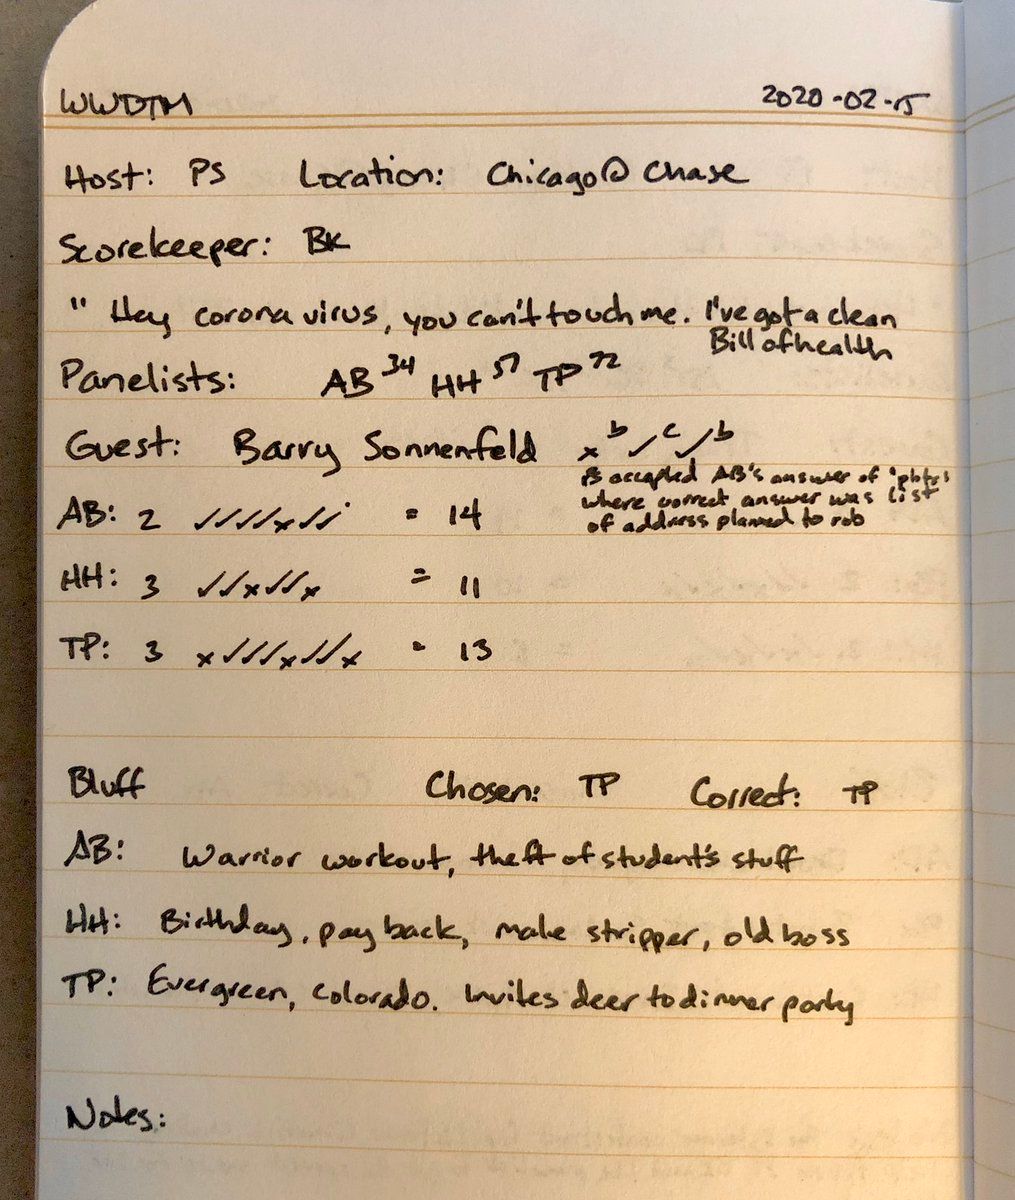 WWDTM 2020-02-15
Host: PS Location: Chicago @ Chase
Scorekeeper: BK
" Hey corona virus, you can't touch me. I've got a clean
Bill of health
Panelists: AB 34 HH 57 TP 72
Guest: Barry Sonnenfeld x b ✓ c ✓ b
PS accepted AB's answer of
where correct answer was list
of address planned to rob
AB: 2 ✓✓✓✓x✓✓ = 14
HH: 3 ✓✓x✓✓x = 11
TP: 3 x✓✓✓x✓✓x = 13
Bluff Chosen: TP Correct: TP
AB: Warrior workout, theft of student's stuff
HH: Birthday, pay back, make stripper, old boss
TP: Evergreen, Colorado. Invites deer to dinner party
Notes: